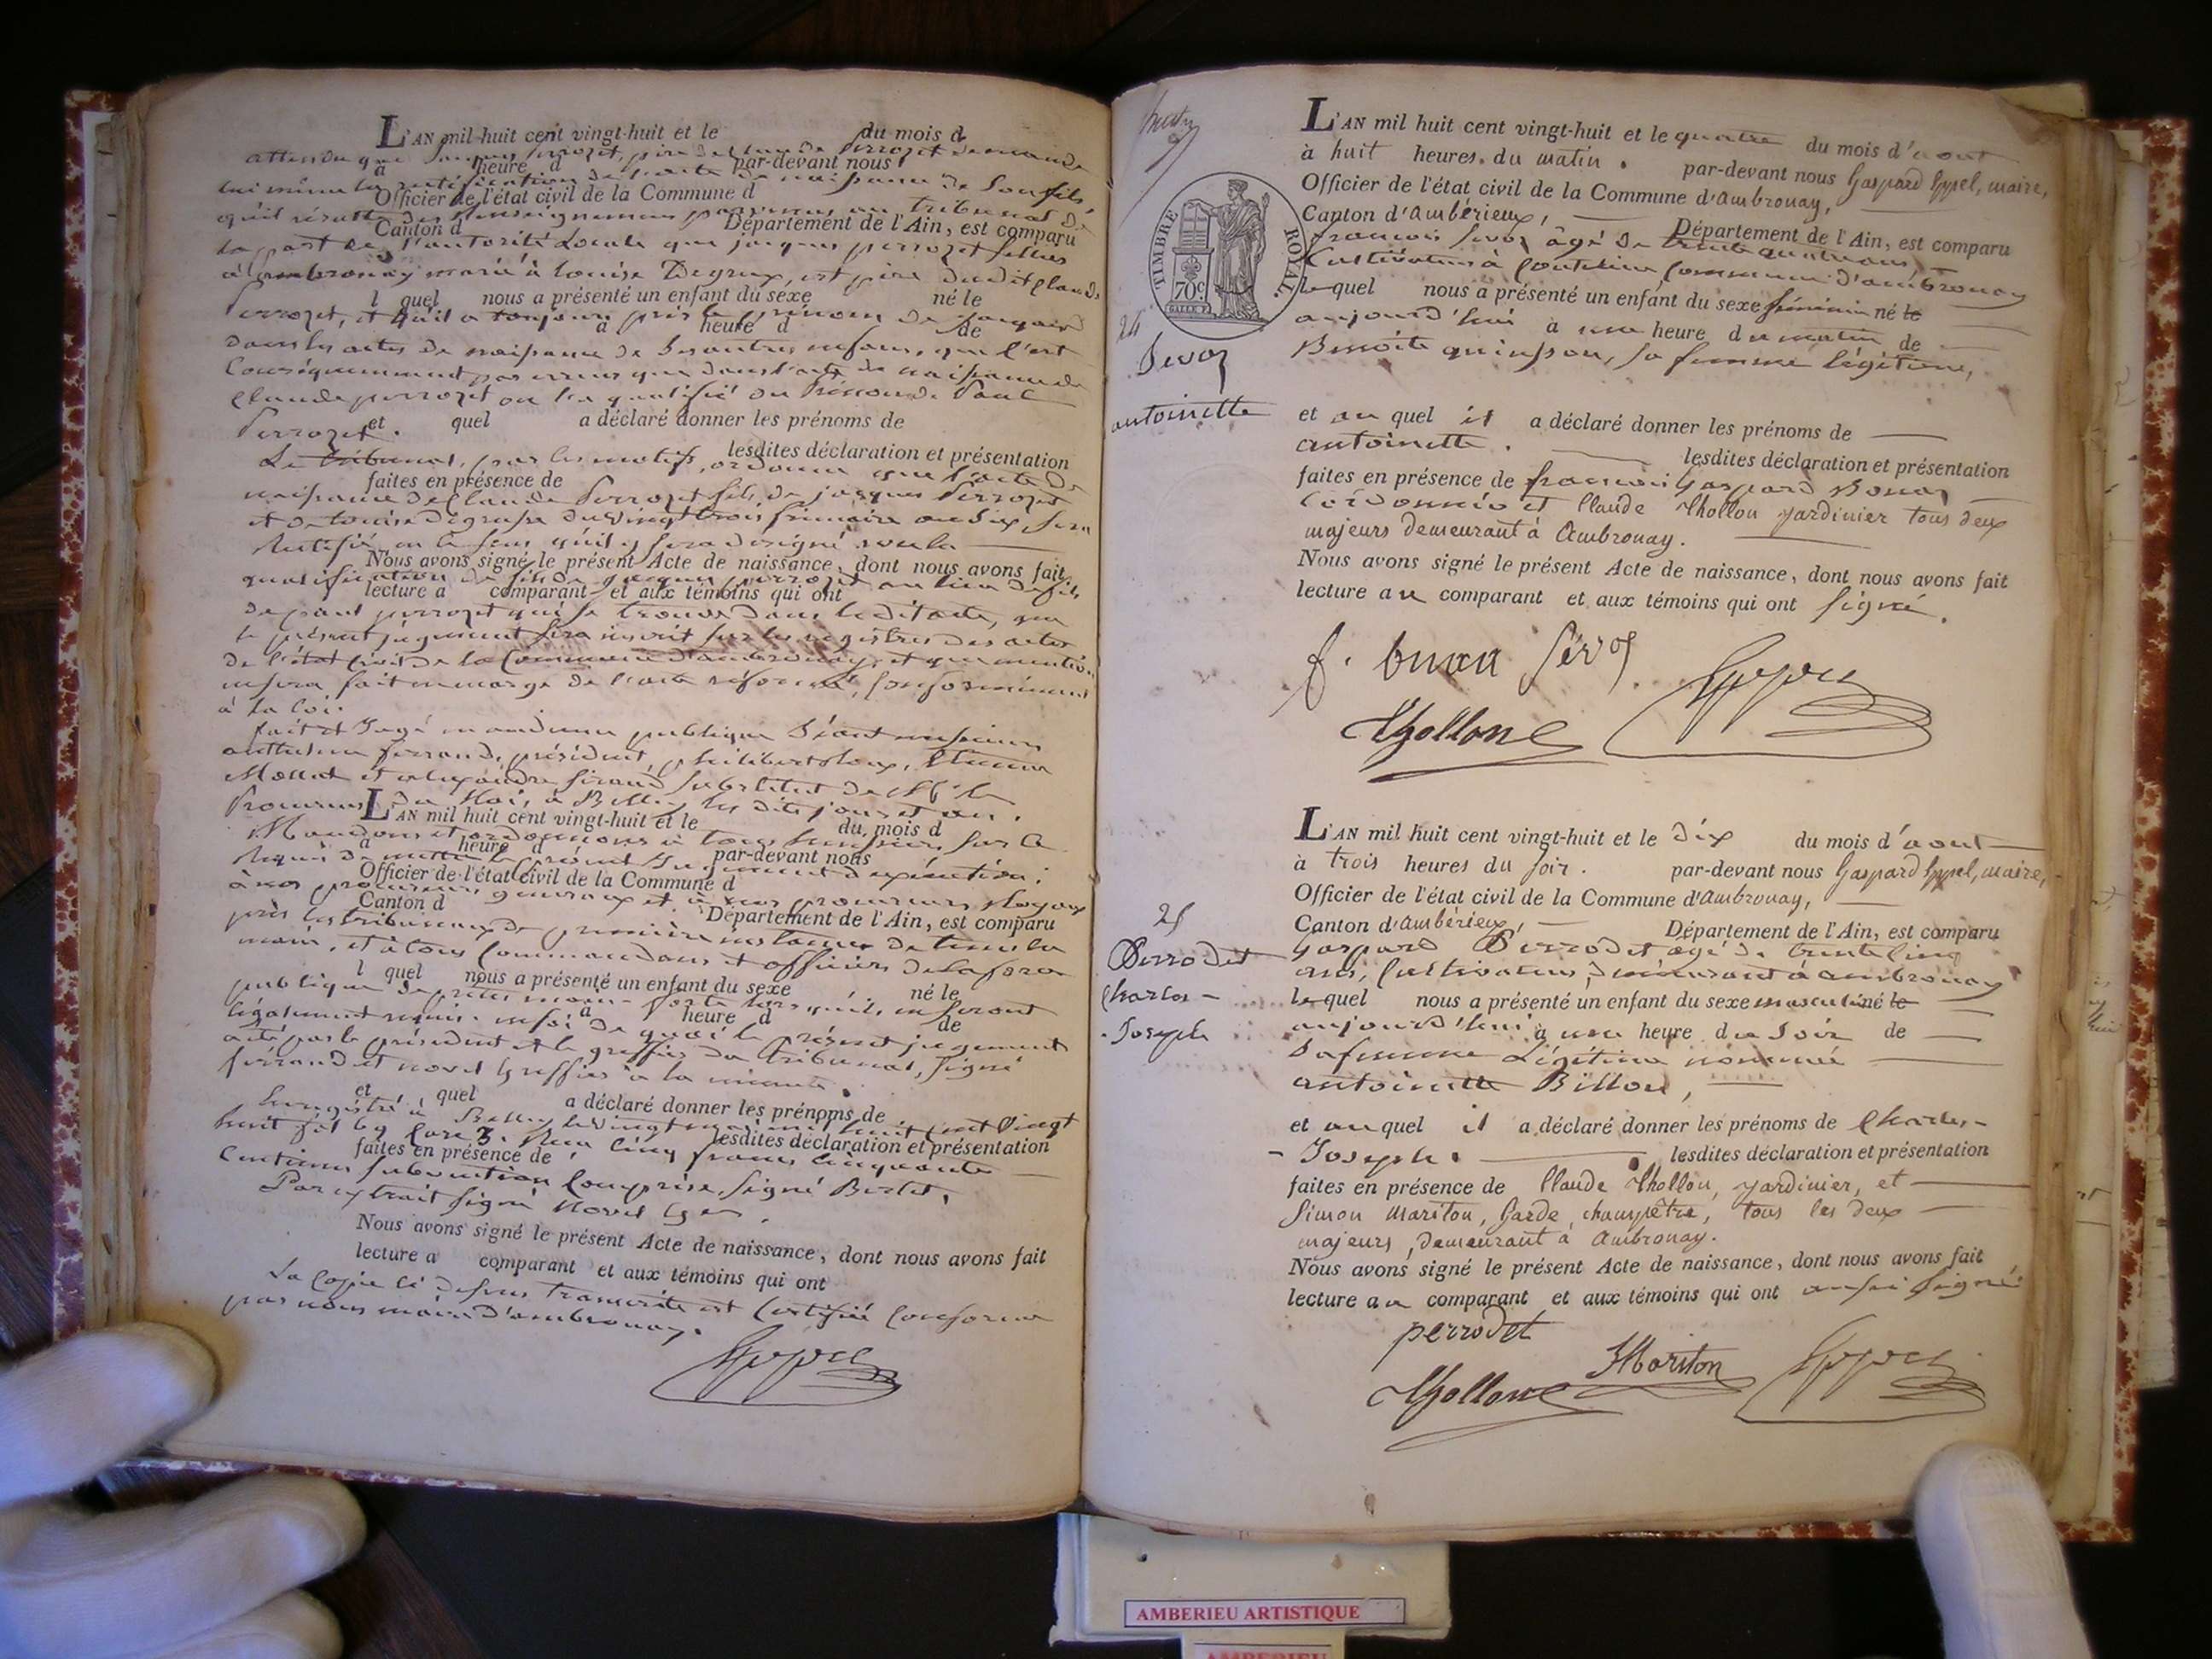 L'AN mil huit cent vingt-huit et le du mois d
attendu que jacques perrozet, père de Claude Perrozet demande
à heure d par-devant nous
lui même la rectification de l'acte de naissance de son fils,
Officier de l'état civil de la Commune d
qu'il résulte des renseignemens parvenus au tribunal de
Canton d Département de l'Ain, est comparu
la part de l'autorité locale que jacques perrozet
à ambronay marié à louise Degreux, est père dudit Claude
l quel nous a présenté un enfant du sexe né le
Perrozet, et qu'il a toujours pris le prénom de jacques
à heure d de
dans les actes de naissance de ses autres enfans, que c'est
Conséquemment par erreur que dans l'acte de naissance de
Claude perrozet on l'a qualifié du Prénom de Paul
Perrozet.
et quel a déclaré donner les prénoms de
Le tribunal, par les motifs, ordonne que l'acte de
lesdites déclaration et présentation
faites en présence de
naissance de Claude Perrozet fils de jacques Perrozet
et de louise degreux du vingt trois frimaire an dix sera
Rectifié en ce sens qu'il y sera designé sous la
Nous avons signé le présent Acte de naissance, dont nous avons fait
qualification de fils de jacques perrozet au lieu de fils
lecture a comparant et aux témoins qui ont
de paul perrozet qui se trouve dans ledit acte, que
le présent jugement sera inscrit sur les registres des actes
de l'état civil de la Commune d'ambronay, et que mention
en sera fait en marge de l'acte réformé, conformément
à la loi.
fait et Jugé en audience publique Séant messieurs
anthelme ferrand, président, philibert
Mollat et alexandre sirand substitut de Mr le
Procureur du Roi, à Belley les dits jour et an.
L'AN mil huit cent vingt-huit et le du mois d
Mandons et ordonnons à tous huissiers sur ce
à heure d par-devant nous
requis de mettre le présent Jugement à exécution;
Officier de l'état civil de la Commune d
à nos procureurs généraux et à nos procureurs
Canton d Département de l'Ain, est comparu
près les tribunaux de première instance de tenir la
main, et à tous Commandans et officiers de la force
l quel nous a présenté un enfant du sexe né le
publique de prêter main-forte lorsqu'ils en seront
à heure d de
légalement requis. en foi de quoi le présent jugement
a été par le président et le greffier du tribunal, signé
ferrand et novel greffier à la minute.
et quel a déclaré donner les prénoms de
Enregistré à Belley le vingt mai mil huit cent vingt
huit fol 69 Case 3. cinq francs cinquante
lesdites déclaration et présentation
faites en présence de
Centimes subvention Comprise, Signé
Par extrait signé Novel
Nous avons signé le présent Acte de naissance, dont nous avons fait
lecture a comparant et aux témoins qui ont
La Copie ci dessus transcrite est Certifiée conforme
par nous maire d'ambronay.
TIMBRE ROYAL.
70 c.
24
Sevoz
antoinette
L'AN mil huit cent vingt-huit et le quatre du mois d'aout
à huit heures du matin. par-devant nous Gaspard Eppel, maire,
Officier de l'état civil de la Commune d'Ambronay,
Canton d'Ambérieux, Département de l'Ain, est comparu
francois Sevoz âgé de trente quatre ans
Cultivateur à Coutelieu Commune d'ambronay
lequel nous a présenté un enfant du sexe féminin né le
aujourd'hui à une heure du matin de
Benoite quinson, sa femme légitime,
et au quel il a déclaré donner les prénoms de
antoinette. lesdites déclaration et présentation
faites en présence de francois Gaspard
Cordonnier et Claude Chollon jardinier tous deux
majeurs demeurant à Ambronay.
Nous avons signé le présent Acte de naissance, dont nous avons fait
lecture au comparant et aux témoins qui ont signé.
Sévoz
Chollon
25
Perrodet
Charles-
Joseph
L'AN mil huit cent vingt-huit et le dix du mois d'aout
à trois heures du soir. par-devant nous Gaspard Eppel, maire,
Officier de l'état civil de la Commune d'Ambronay,
Canton d'Ambérieux, Département de l'Ain, est comparu
Gaspard Perrodet agé de trente cinq
ans, Cultivateur, demeurant à ambronay
lequel nous a présenté un enfant du sexe masculin né le
aujourd'hui à une heure du Soir de
Sa femme Légitime nommée
antoinette Billon,
et au quel il a déclaré donner les prénoms de Charles-
-Joseph. lesdites déclaration et présentation
faites en présence de Claude Chollon, jardinier, et
Simon Mariton, Garde champêtre, tous les deux
majeurs, demeurant à Ambronay.
Nous avons signé le présent Acte de naissance, dont nous avons fait
lecture au comparant et aux témoins qui ont aussi signé
perrodet
Mariton
Chollon
AMBERIEU ARTISTIQUE
AMBERIEU